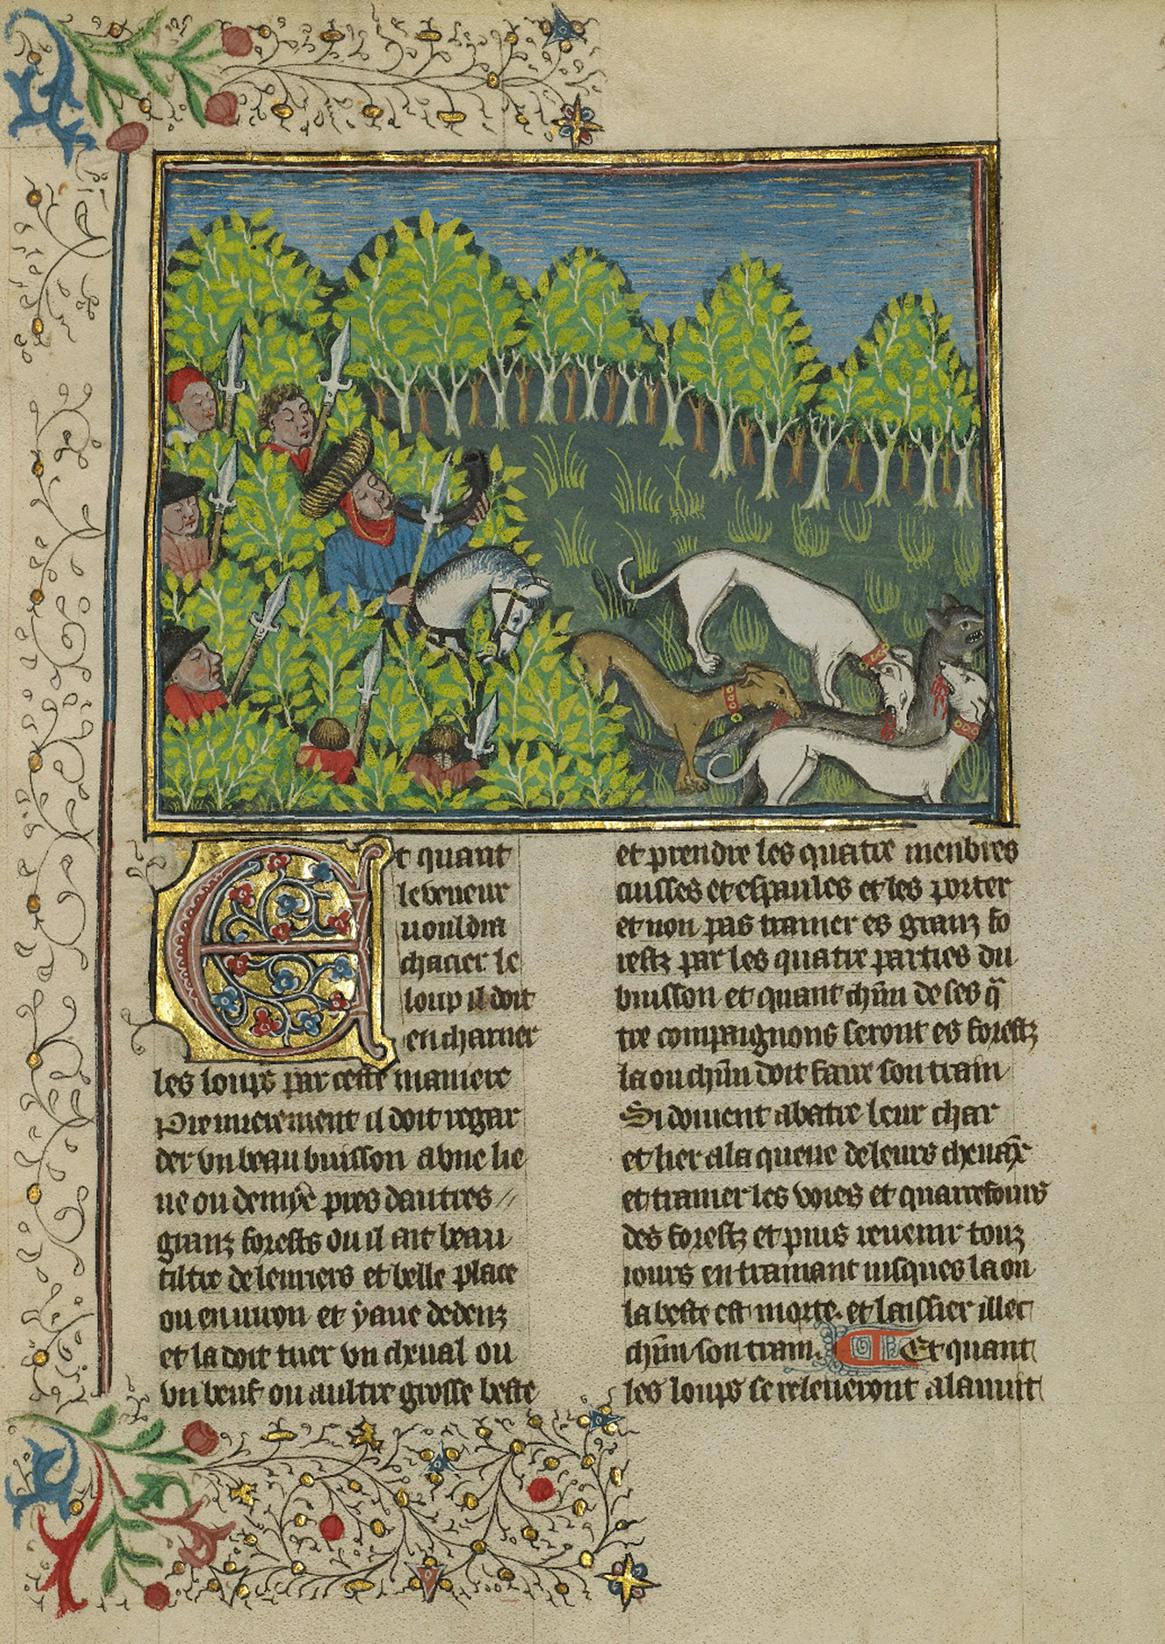 Et quant
le veneur
vouldra
chacier le
loup il doit
encharner
les loups par ceste maniere
Premierement il doit regar
der vn beau buisson a vne lie
ue ou demye pres dautres
granz forests ou il ait beau
tiltre de leuriers et belle place
ou enuiron et yaue dedenz
et la doit tuer vn cheual ou
vn beuf ou aultre grosse beste
et prendre les quatre menbres
cuisses et espaules et les porter
et non pas trainer es granz fo
restz par les quatre parties du
buisson et quant chun de ses q̃
tre compaignons seront es forestz
la ou chun doit faire son train
Si doiuent abatre leur char
et lier a la queue de leurs cheuaẍ
et trainer les voies et quarrefours
des forestz et puis reuenir touz
iours en trainant iusques la ou
la beste est morte. et laissier illec
chun son train. Et quant
les loups se releueront a la nuit